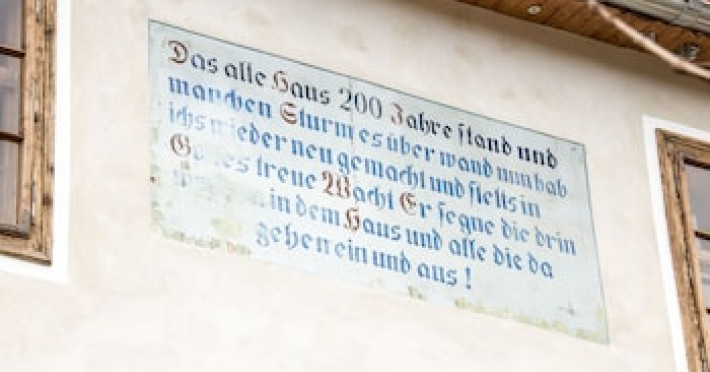 Das alte Haus 200 Jahre stand und
manchen Sturm es über wand nun hab
ichs wieder neu gemacht und stells in
Gottes treue Wacht Er segne die drin
in dem Haus und alle die da
gehen ein und aus !